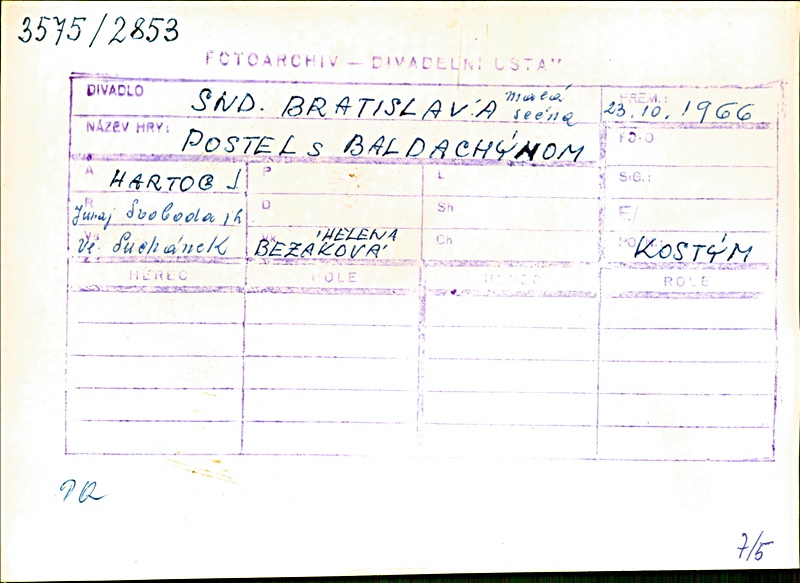 3575/2853
FOTOARCHIV — DIVADELNÍ ÚSTAV
DIVADLO SND. BRATISLAVA malá scéna PREM.: 23.10.1966
NÁZEV HRY: POSTEL S BALDACHÝNOM FO-O
A HARTOG J P L SIG.:
R Juraj Svoboda j h D Sh F/
Vý. Suchánek HELENA BEZÁKOVÁ Ch KOSTÝM
HEREC ROLE HEREC ROLE
7/5